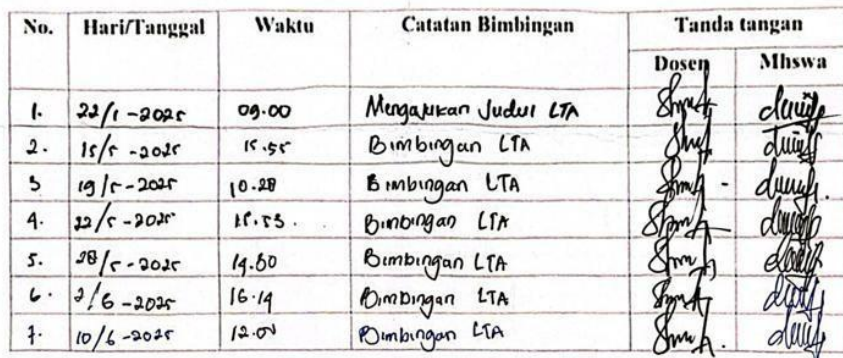 No. Hari/Tanggal Waktu Catatan Bimbingan Tanda tangan
Dosen Mhswa
1. 22/1-2025 09.00 Mengajukan Judul LTA
2. 15/5-2025 15.55 Bimbingan LTA
3 19/5-2025 10.28 Bimbingan LTA
4. 22/5-2025 Bimbingan LTA
5. 28/5-2025 Bimbingan LTA
6. 2/6-2025 16.14 Bimbingan LTA
7. 10/6-2025 Bimbingan LTA